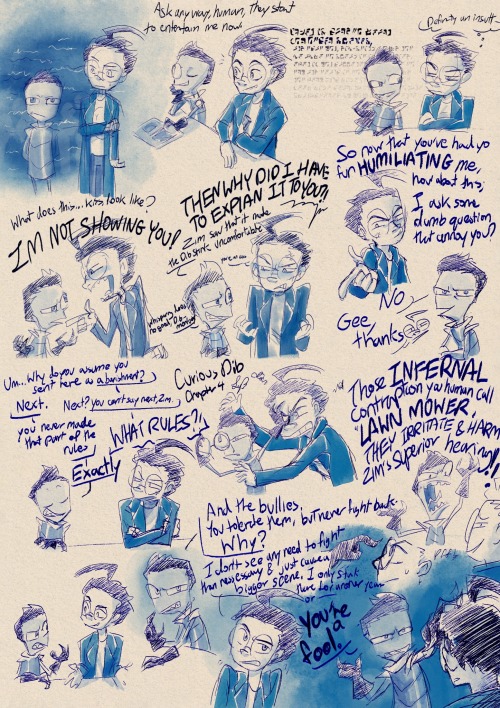 Ask any way, human, They start
to entertain me now.
Definitly an insult
So now that you've had yo
fun HUMILIATING me,
how about this;
I ask some
dumb question
that annoy you?
No
Gee,
thanks
What does this... kiss look like?
I'M NOT SHOWING YOU!
THEN WHY DID I HAVE
TO EXPLAIN IT TO YOU?!
Zim saw that it made
the Dib stink uncomfortable
Um... Why do you assume you
sent here as a banishment?
Next.
Next? You can't say next, Zim.
you never made
that part of the
rules
WHAT RULES?!
Exactly
Curious Dib
Chapter 4
Those INFERNAL
Contraption you human call
"LAWN MOWER,
THEY IRRITATE & HARM
Zim's Superior hearing!!
And the bullies.
You tolerate them, but never fight back..
Why?
I don't see any need to fight
than necessary & just cause a
bigger scene. I only stuck
here for another year
or
You're
a
fool.